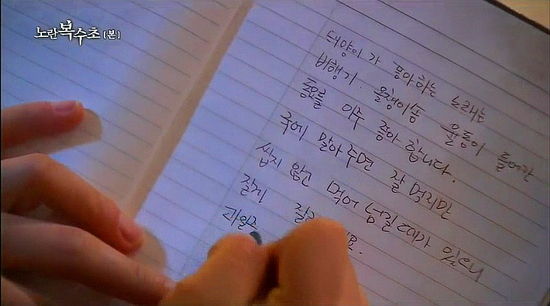 노란 복수초 [본]
태양이가 좋아하는 노래는
비행기. 올챙이송 율동이 들어간
동요를 아주 좋아합니다.
국에 말아주면 잘 먹지만
씹지 않고 먹어 넘길때가 있으니
잘게
과일은